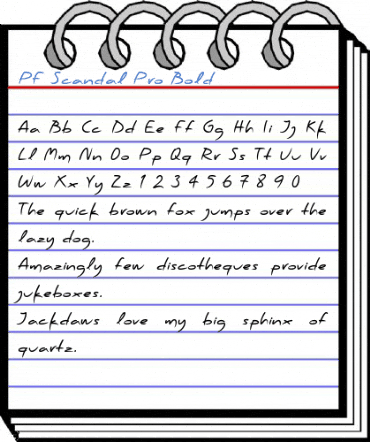 PF Scandal Pro Bold
Aa Bb Cc Dd Ee Ff Gg Hh Ii Jj Kk
Ll Mm Nn Oo Pp Qq Rr Ss Tt Uu Vv
Ww Xx Yy Zz 1 2 3 4 5 6 7 8 9 0
The quick brown fox jumps over the
lazy dog.
Amazingly few discotheques provide
jukeboxes.
Jackdaws love my big sphinx of
quartz.